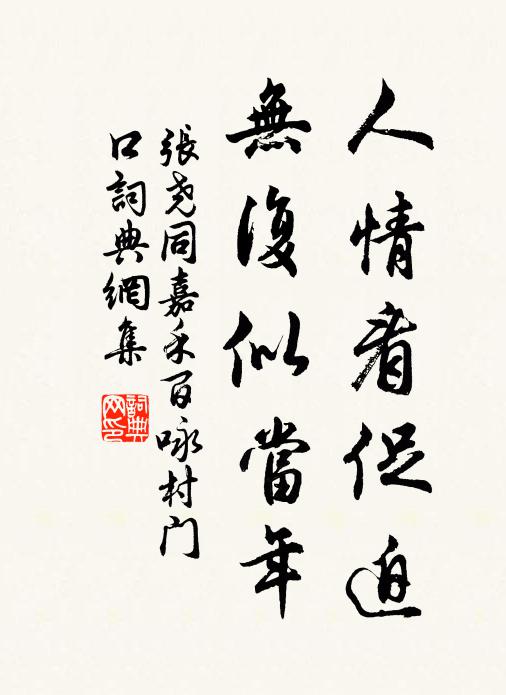 人情看促迫
無復似當年
張尧同嘉禾百咏村门
口詞典網集
詞典网印